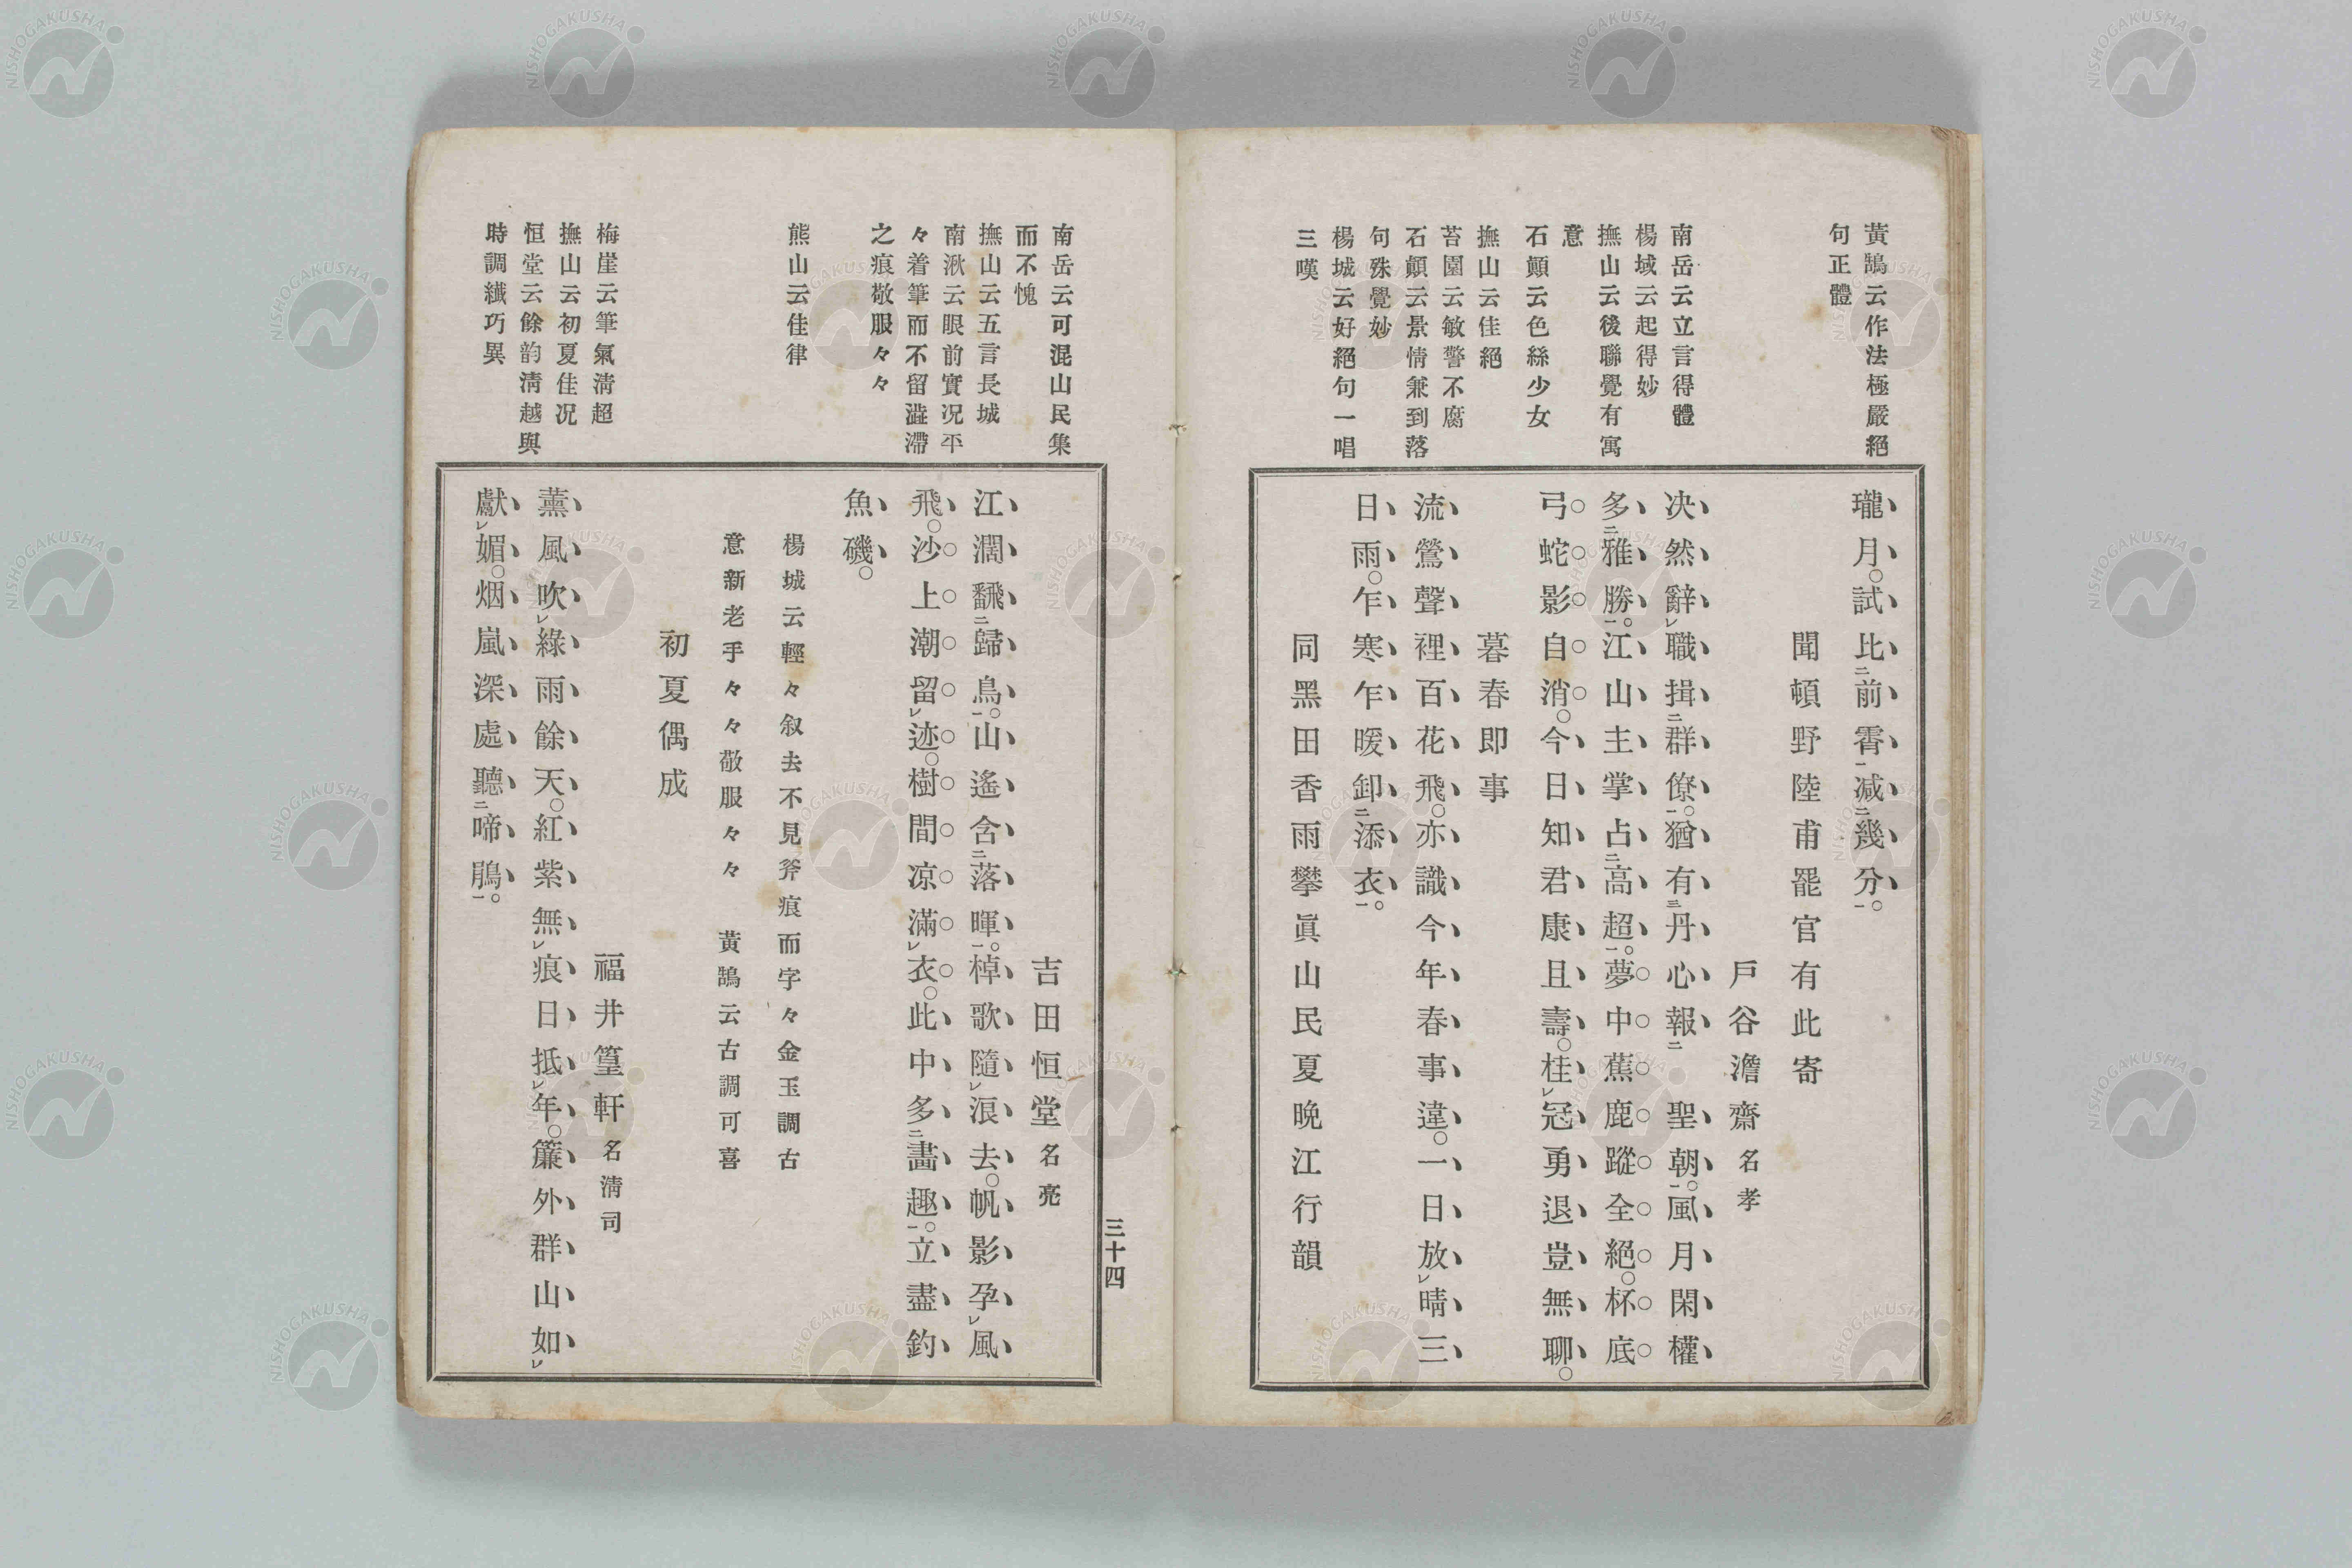 黃鵠云作法極嚴絕
句正體
南岳云立言得體
楊域云起得妙
撫山云後聯覺有寓
意
石顚云色絲少女
撫山云佳絕
苔園云敏警不腐
石顚云景情兼到落
句殊覺妙
楊城云好絕句一唱
三嘆
瓏月。試比二前宵一减二幾分一。
聞頓野陸甫罷官有此寄
戶谷澹齋名孝
决然辭レ職揖二群僚一。猶有三丹心報二聖朝一。風月閑權
多二雅勝一。江山主掌占二高超一。夢中蕉鹿蹤全絕。杯底
弓蛇影自消。今日知君康且壽。桂レ冠勇退豈無聊。
暮春即事
流鶯聲裡百花飛。亦識今年春事違。一日放レ晴三
日雨。乍寒乍暖卸二添衣一。
同黑田香雨攀眞山民夏晩江行韻
南岳云可混山民集
而不愧
撫山云五言長城
南湫云眼前實况平
々着筆而不留澁滯
之痕敬服々々
熊山云佳律
梅崖云筆氣淸超
撫山云初夏佳况
恒堂云餘韵淸越與
時調纎巧異
吉田恒堂名亮
江濶飜二歸鳥一。山遙含二落暉一。棹歌隨レ浪去。帆影孕レ風
飛。沙上潮留レ迹。樹間凉滿レ衣。此中多二畵趣一。立盡釣
魚磯。
楊城云輕々叙去不見斧痕而字々金玉調古
意新老手々々敬服々々 黃鵠云古調可喜
初夏偶成
福井篁軒名淸司
薰風吹レ綠雨餘天。紅紫無レ痕日抵レ年。簾外群山如レ
獻レ媚。烟嵐深處聽二啼鵑一。
三十四
NISHOGAKUSHA